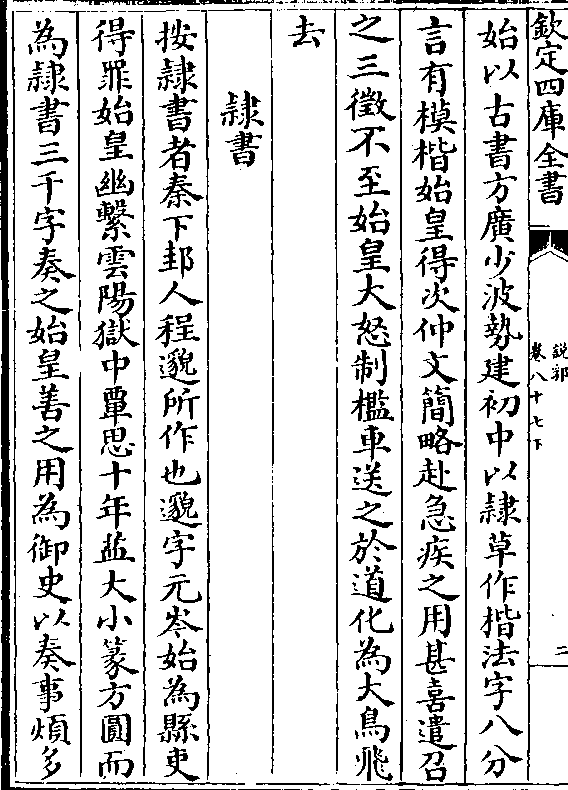 欽定四庫全書
說郛
卷八十七下
二
始以古書方廣少波勢建初中以隸草作楷法字八分
言有模楷始皇得次仲文簡略赴急疾之用甚喜遣召
之三徵不至始皇大怒制檻車送之於道化為大鳥飛
去
隸書
按隸書者秦下邽人程邈所作也邈字元岑始為縣吏
得罪始皇幽繫雲陽獄中覃思十年益大小篆方圓而
為隸書三千字奏之始皇善之用為御史以奏事煩多